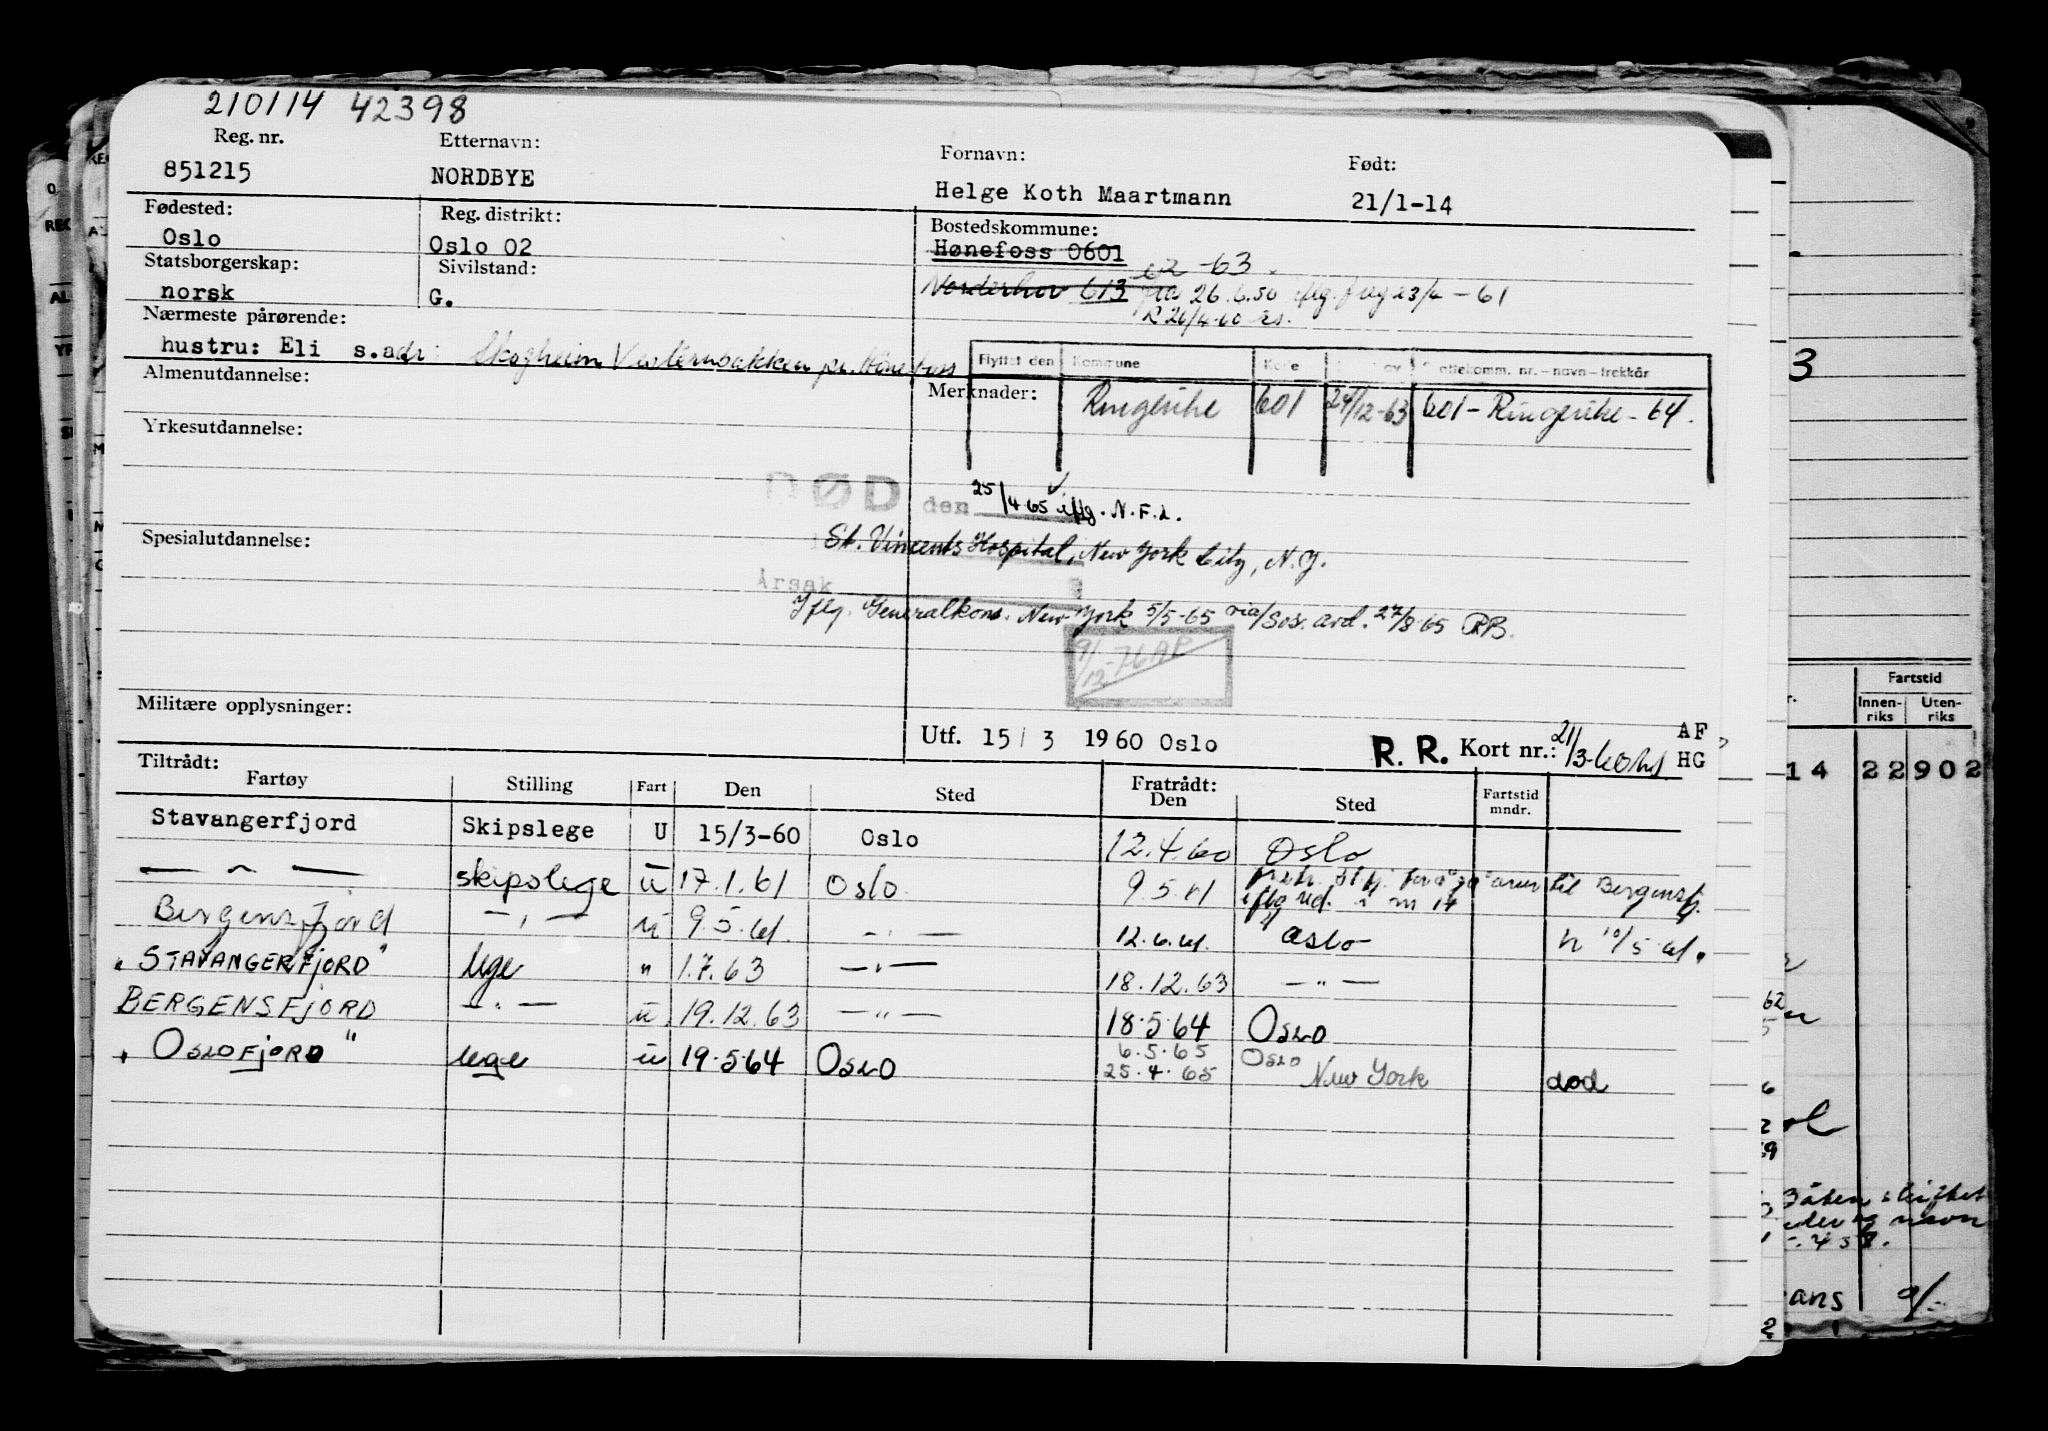 210114 42398
Reg. nr. Etternavn: Fornavn: Født:
851215 NORDBYE Helge Koth Maartmann 21/1-14
Fødested: Reg. distrikt: Bostedskommune:
Oslo Oslo 02 Hønefoss 0601
Statsborgerskap: Sivilstand: 62-63.
norsk G. Norderhov 613 fra 26.6.50 iflg. freg 23/4-61
Nærmeste pårørende: R 26/4-60 rs.
hustru: Eli s.adr: Skogheim Vesternbakken pr. Hønefoss
Flyttet den Kommune Kode nr.-navn-trekkår
Almenutdannelse: Merknader: Ringerike 601 24/12-63 601-Ringerike-64.
Yrkesutdannelse:
DØD den 25/4 65 iflg. N.F.d.
Spesialutdannelse: St. Vincents Hospital, New York City, N.Y.
Årsak
Iflg. Generalkons. New York 5/5-65 via/Sos. avd. 27/8-65 RB.
9/12-76 AP
Militære opplysninger:
Utf. 15/3 1960 Oslo R. R. Kort nr.: 21/3-60 AF
HG
Tiltrådt: Fratrådt:
Fartøy Stilling Fart Den Sted Den Sted Fartstid mndr.
Stavangerfjord Skipslege U 15/3-60 Oslo 12.4.60 Oslo
— " — skipslege u 17.1.61 Oslo. 9.5.61 til Bergensfj.
iflg
Bergensfjord — " — u 9.5.61. — " — 12.6.61. Oslo 10/5 61.
"STAVANGERFJORD" lege " 1.7.63 — " — 18.12.63 — " —
BERGENSFJORD — " — u 19.12.63 — " — 18.5.64 Oslo
"OSLOFJORD" lege u 19.5.64 OSLO 6.5.65 Oslo
25.4.65 New York død
3
Fartstid
Innen-riks Uten-riks
14 22902